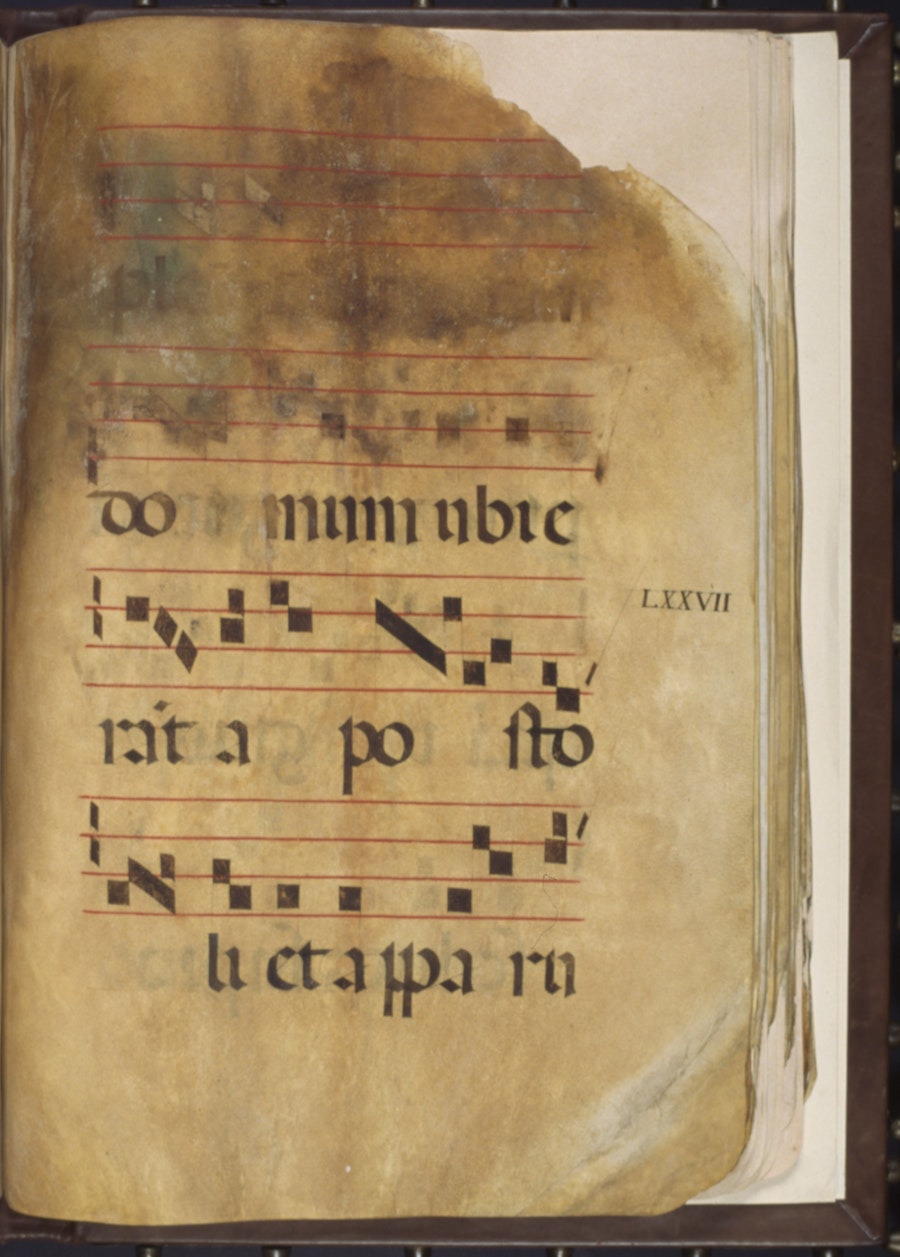 ple
do mum ubi e
LXXVII
rāt a po sto
li et appa ru